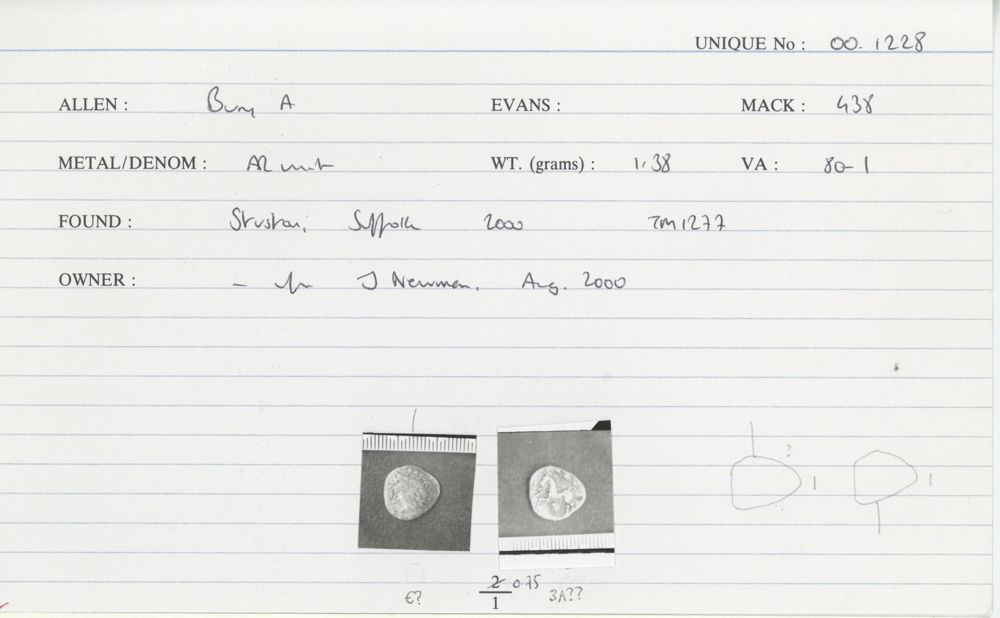 UNIQUE No : 00. 1228
ALLEN : Bury A EVANS : MACK : 438
METAL/DENOM : AR unit WT. (grams) : 1.38 VA : 80-1
FOUND : Suffolk 2000 TM1277
OWNER : - J Newman, Aug. 2000
? 1 1
2 0.75
€? 1 3A??